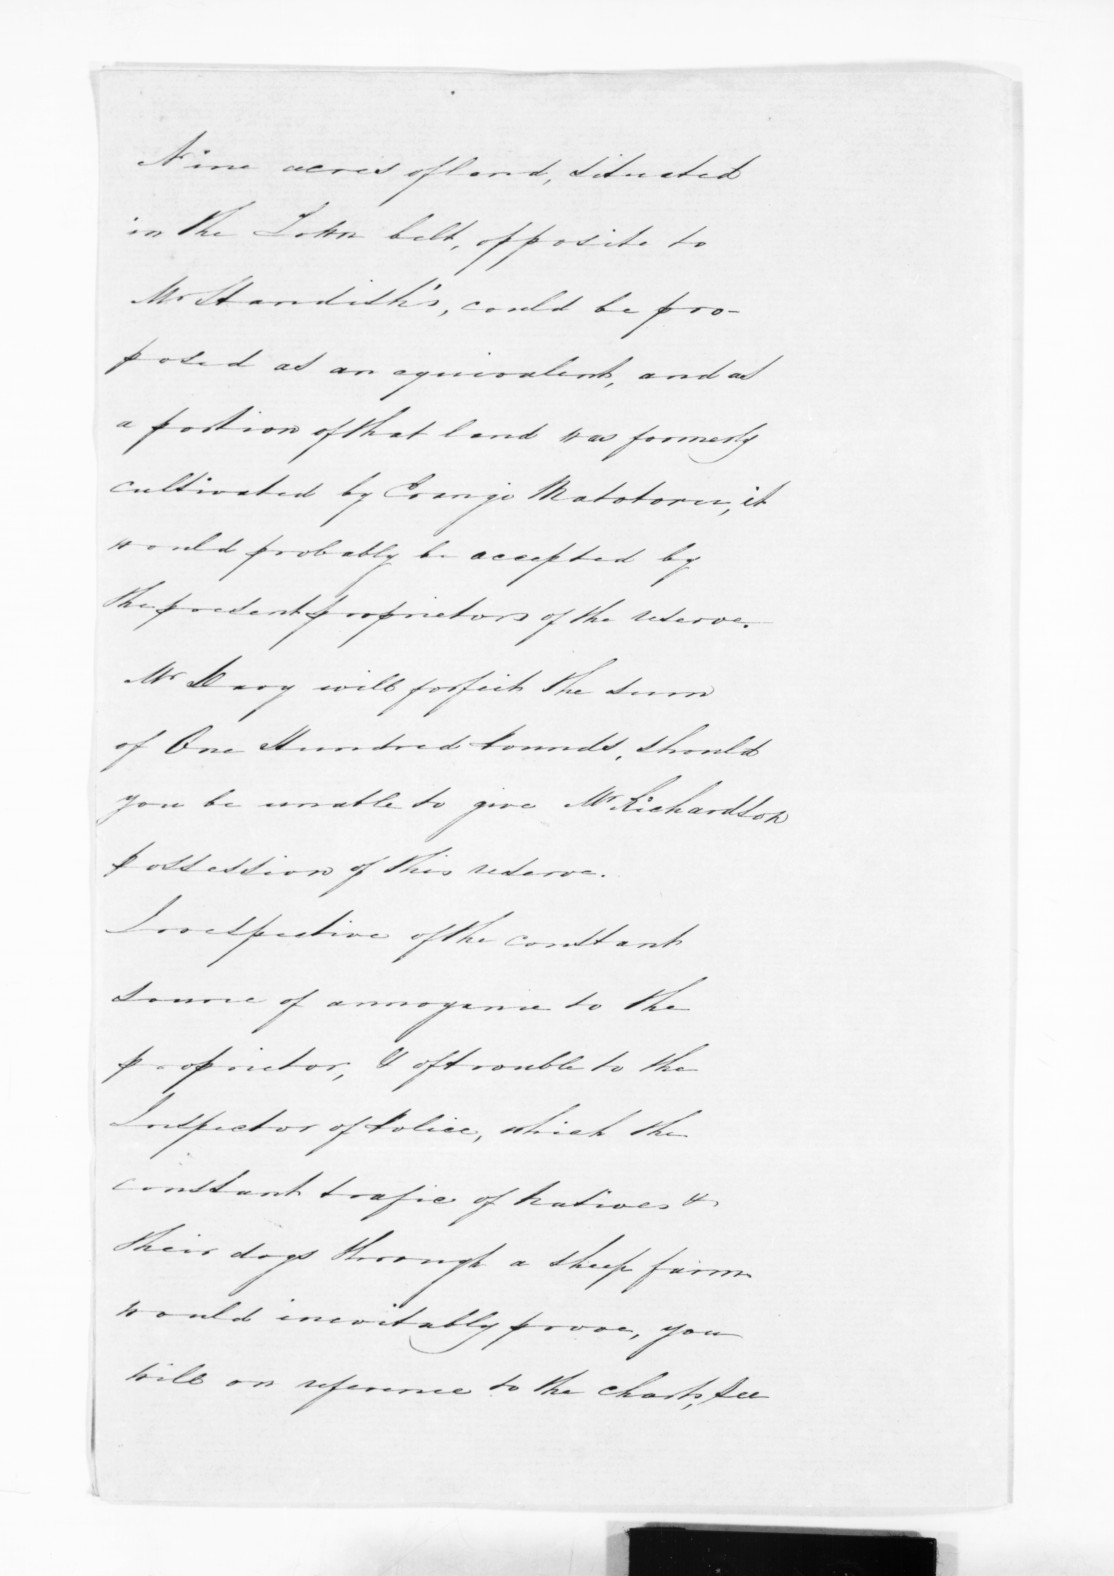 Nine acres of land, situated
in the Town belt, opposite to
Mr Standish's, could be pro-
posed as an equivalent, and as
a portion of that land was formerly
cultivated by Erangi Matotoru, it
would probably be accepted by
the present proprietors of the reserve.
Mr will forfeit the sum
of One Hundred Pounds, should
you be unable to give Mr Richardson
possession of this reserve.
Irrespective of the constant
source of annoyance to the
proprietor, & of trouble to the
Inspector of Police, which the
constant trafic of Natives &
their dogs through a sheep farm
would inevitably prove, you
will on reference to the chart, see